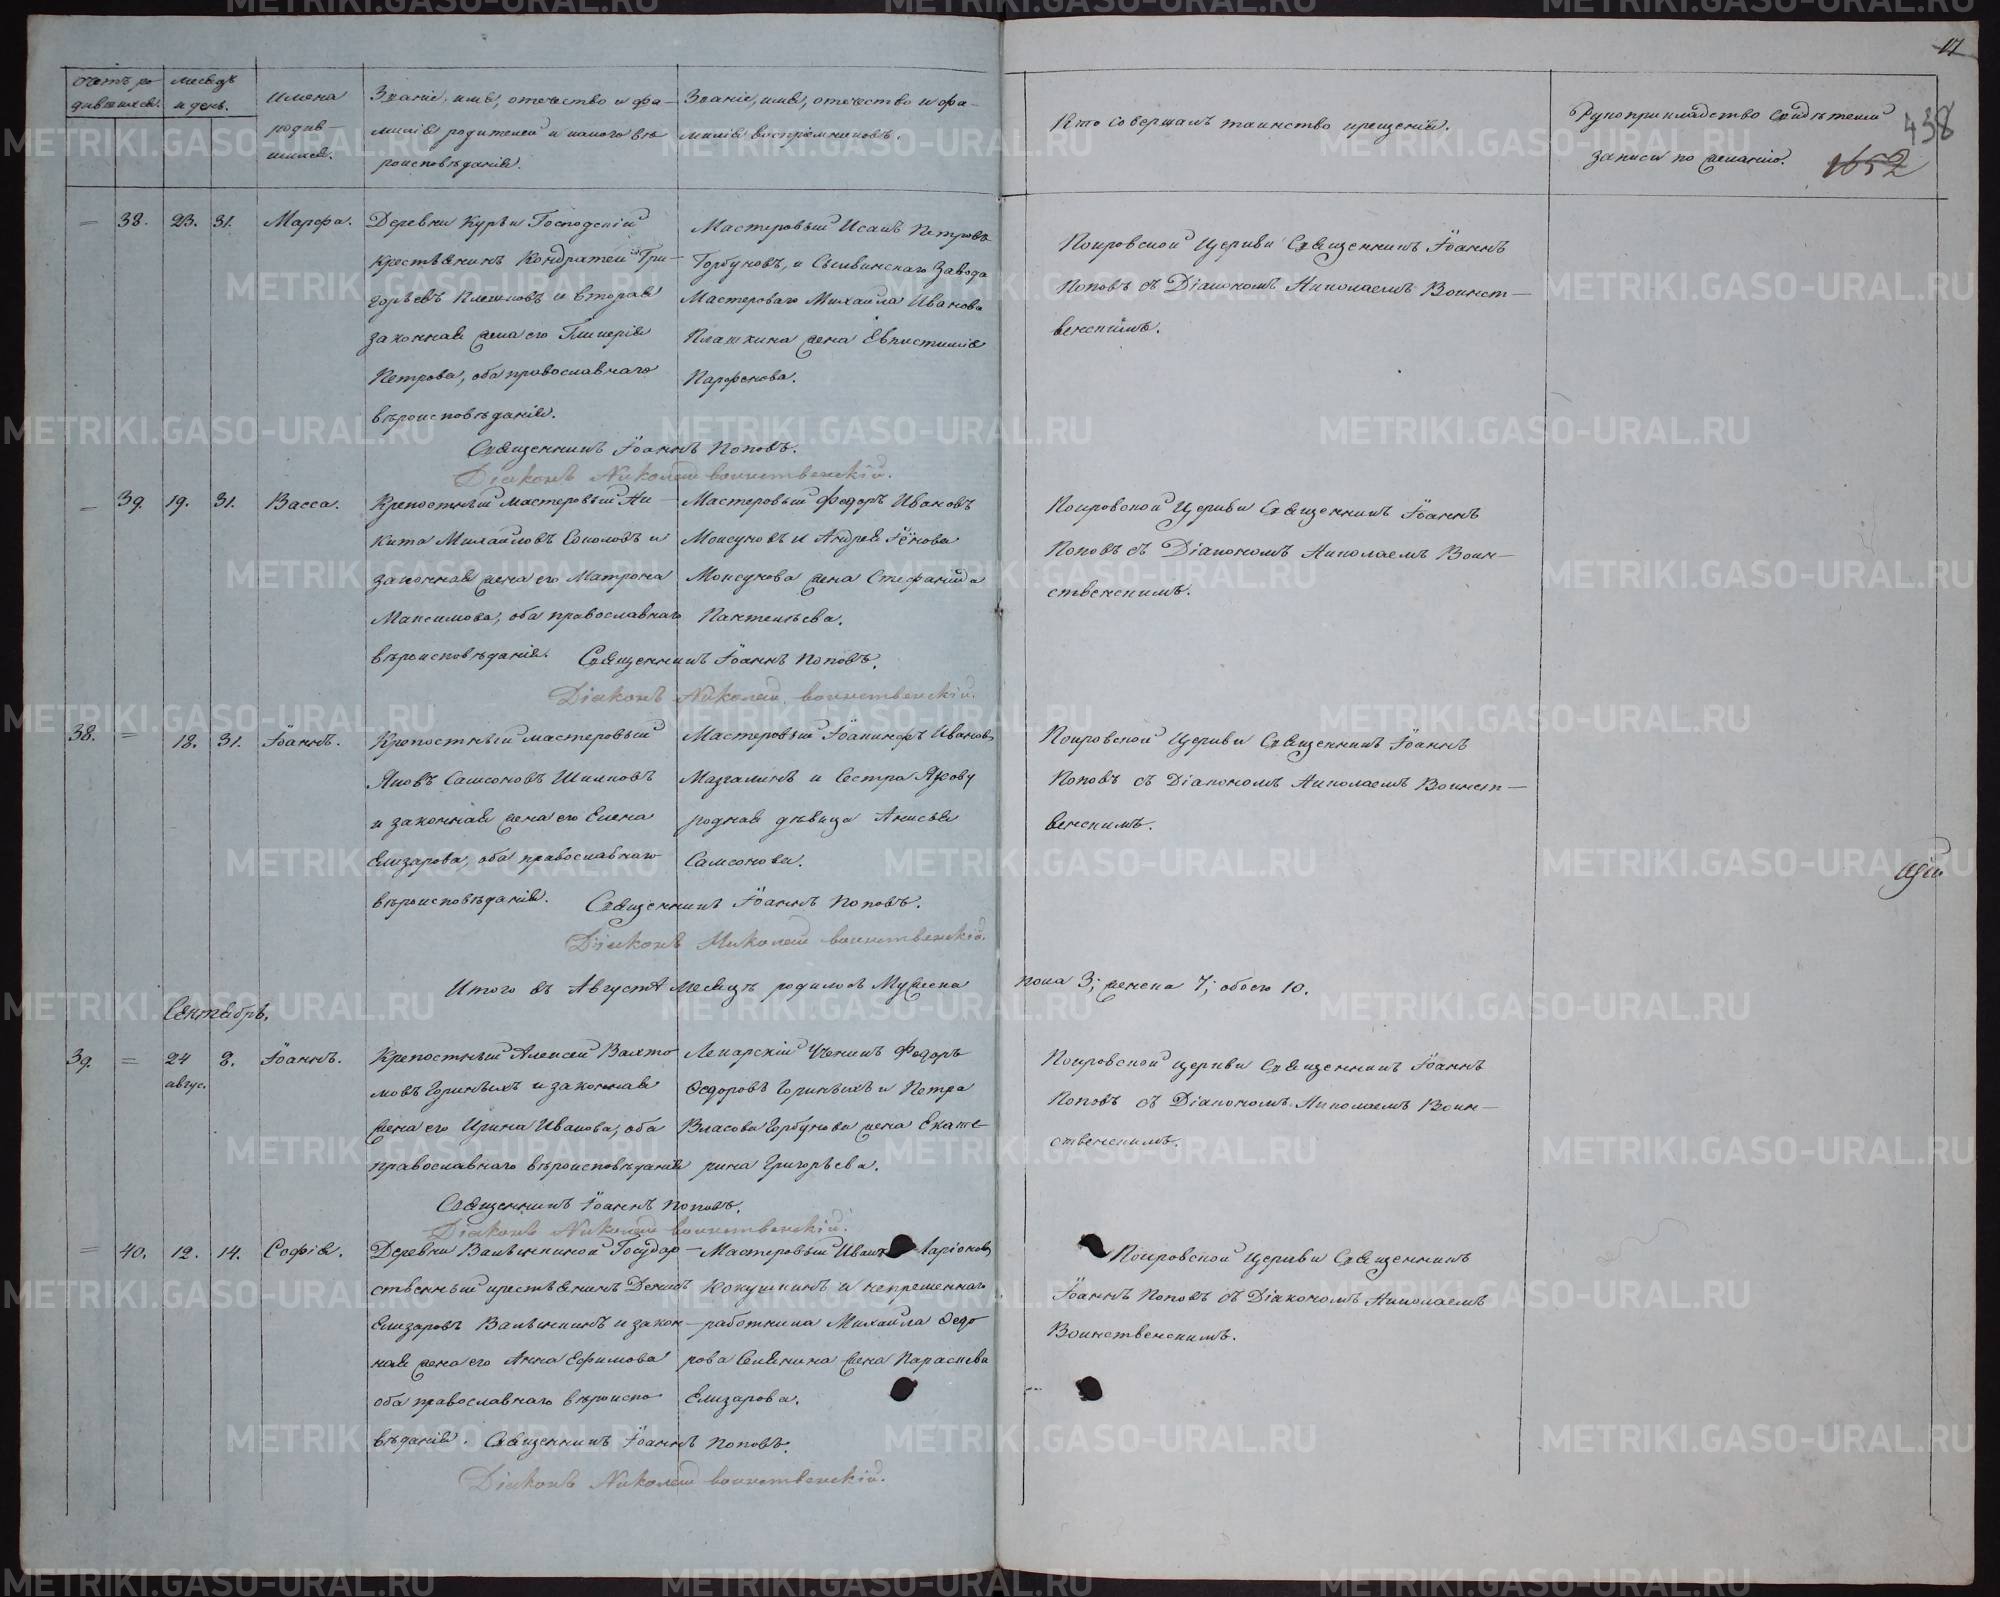 17
438
1652
Счетъ ро-
дившихся.
Месяцъ
и день.
Имена
родив-
шихся.
Званіе, имя, отечество и фа-
милія родителей и какого вѣ
роисповѣданія.
Званіе, имя, отечество и фа-
милія воспріемниковъ.
Кто совершалъ таинство крещенія.
Рукоприкладство свидѣтелей
записи по желанію.
— 38. 23. 31. Марфа.
Деревни Курьи Господскій
крестьянинъ Кондратей Гри-
горьевъ Плешковъ и вторая
законная жена его Гликерія
Петрова, оба православнаго
вѣроисповѣданія.
Мастеровый Исакъ Петровъ
Горбуновъ, и Сылвинскаго Завода
Мастероваго Михаила Иванова
Плашкина жена Евпистимія
Парфенова.
Покровской Церкви Священникъ Іоаннъ
Поповъ съ Діакономъ Николаемъ Воинст-
венскимъ.
Священникъ Іоаннъ Поповъ.
Діаконъ Николай Воинственскій.
— 39. 19. 31. Васса.
Крепостный мастеровый Ни-
кита Михайловъ Соколовъ и
законная жена его Матрона
Максимова, оба православнаго
вѣроисповѣданія.
Мастеровый Федоръ Ивановъ
Моксуновъ и Андрея
Моксунова жена Стефанида
Пантелѣева.
Покровской Церкви Священникъ Іоаннъ
Поповъ съ Діакономъ Николаемъ Воин-
ственскимъ.
Священникъ Іоаннъ Поповъ.
Діаконъ Николай Воинственскій.
38. = 18. 31. Іоаннъ.
Крепостный мастеровый
Яковъ Самсоновъ Шилковъ
и законная жена его Елена
Елизарова, оба православнаго
вѣроисповѣданія.
Мастеровый Ивановъ
Мазгалинъ и Сестра Якову
родная дѣвица Анисья
Самсонова.
Покровской Церкви Священникъ Іоаннъ
Поповъ съ Діакономъ Николаемъ Воинст-
венскимъ.
Священникъ Іоаннъ Поповъ.
Діаконъ Николай Воинственскій.
Итого въ Августѣ Месяцѣ родилось Мужеска
пола 3; женска 7; обоего 10.
Сентябрь.
39. = 24 8. Іоаннъ.
авгус.
Крепостный Алексей Вахто
мовъ Гориныхъ и законная
жена его Ирина Иванова, оба
православнаго вѣроисповѣданія
Лекарскій Ученикъ Федоръ
Федоровъ Гориныхъ и Петра
Власова Горбунова жена Екате
рина Григорьева.
Покровской церкви Священникъ Іоаннъ
Поповъ съ Діакономъ Николаемъ Воин-
ственскимъ.
Священникъ Іоаннъ Поповъ.
Діаконъ Николай Воинственскій.
= 40. 12. 14. Софія.
Деревни Государ-
ственный крестьянинъ Денисъ
Елизаровъ и закон-
ная жена его Анна Ефимова
оба православнаго вѣроиспо
вѣданія.
Мастеровый Иванъ Ларіоновъ
Кокушкинъ и непременнаго
работника Михаила Федо
рова Селянина жена Параскева
Елизарова.
Покровской Церкви Священникъ
Іоаннъ Поповъ съ Діакономъ Николаемъ
Воинственскимъ.
Священникъ Іоаннъ Поповъ.
Діаконъ Николай Воинственскій.